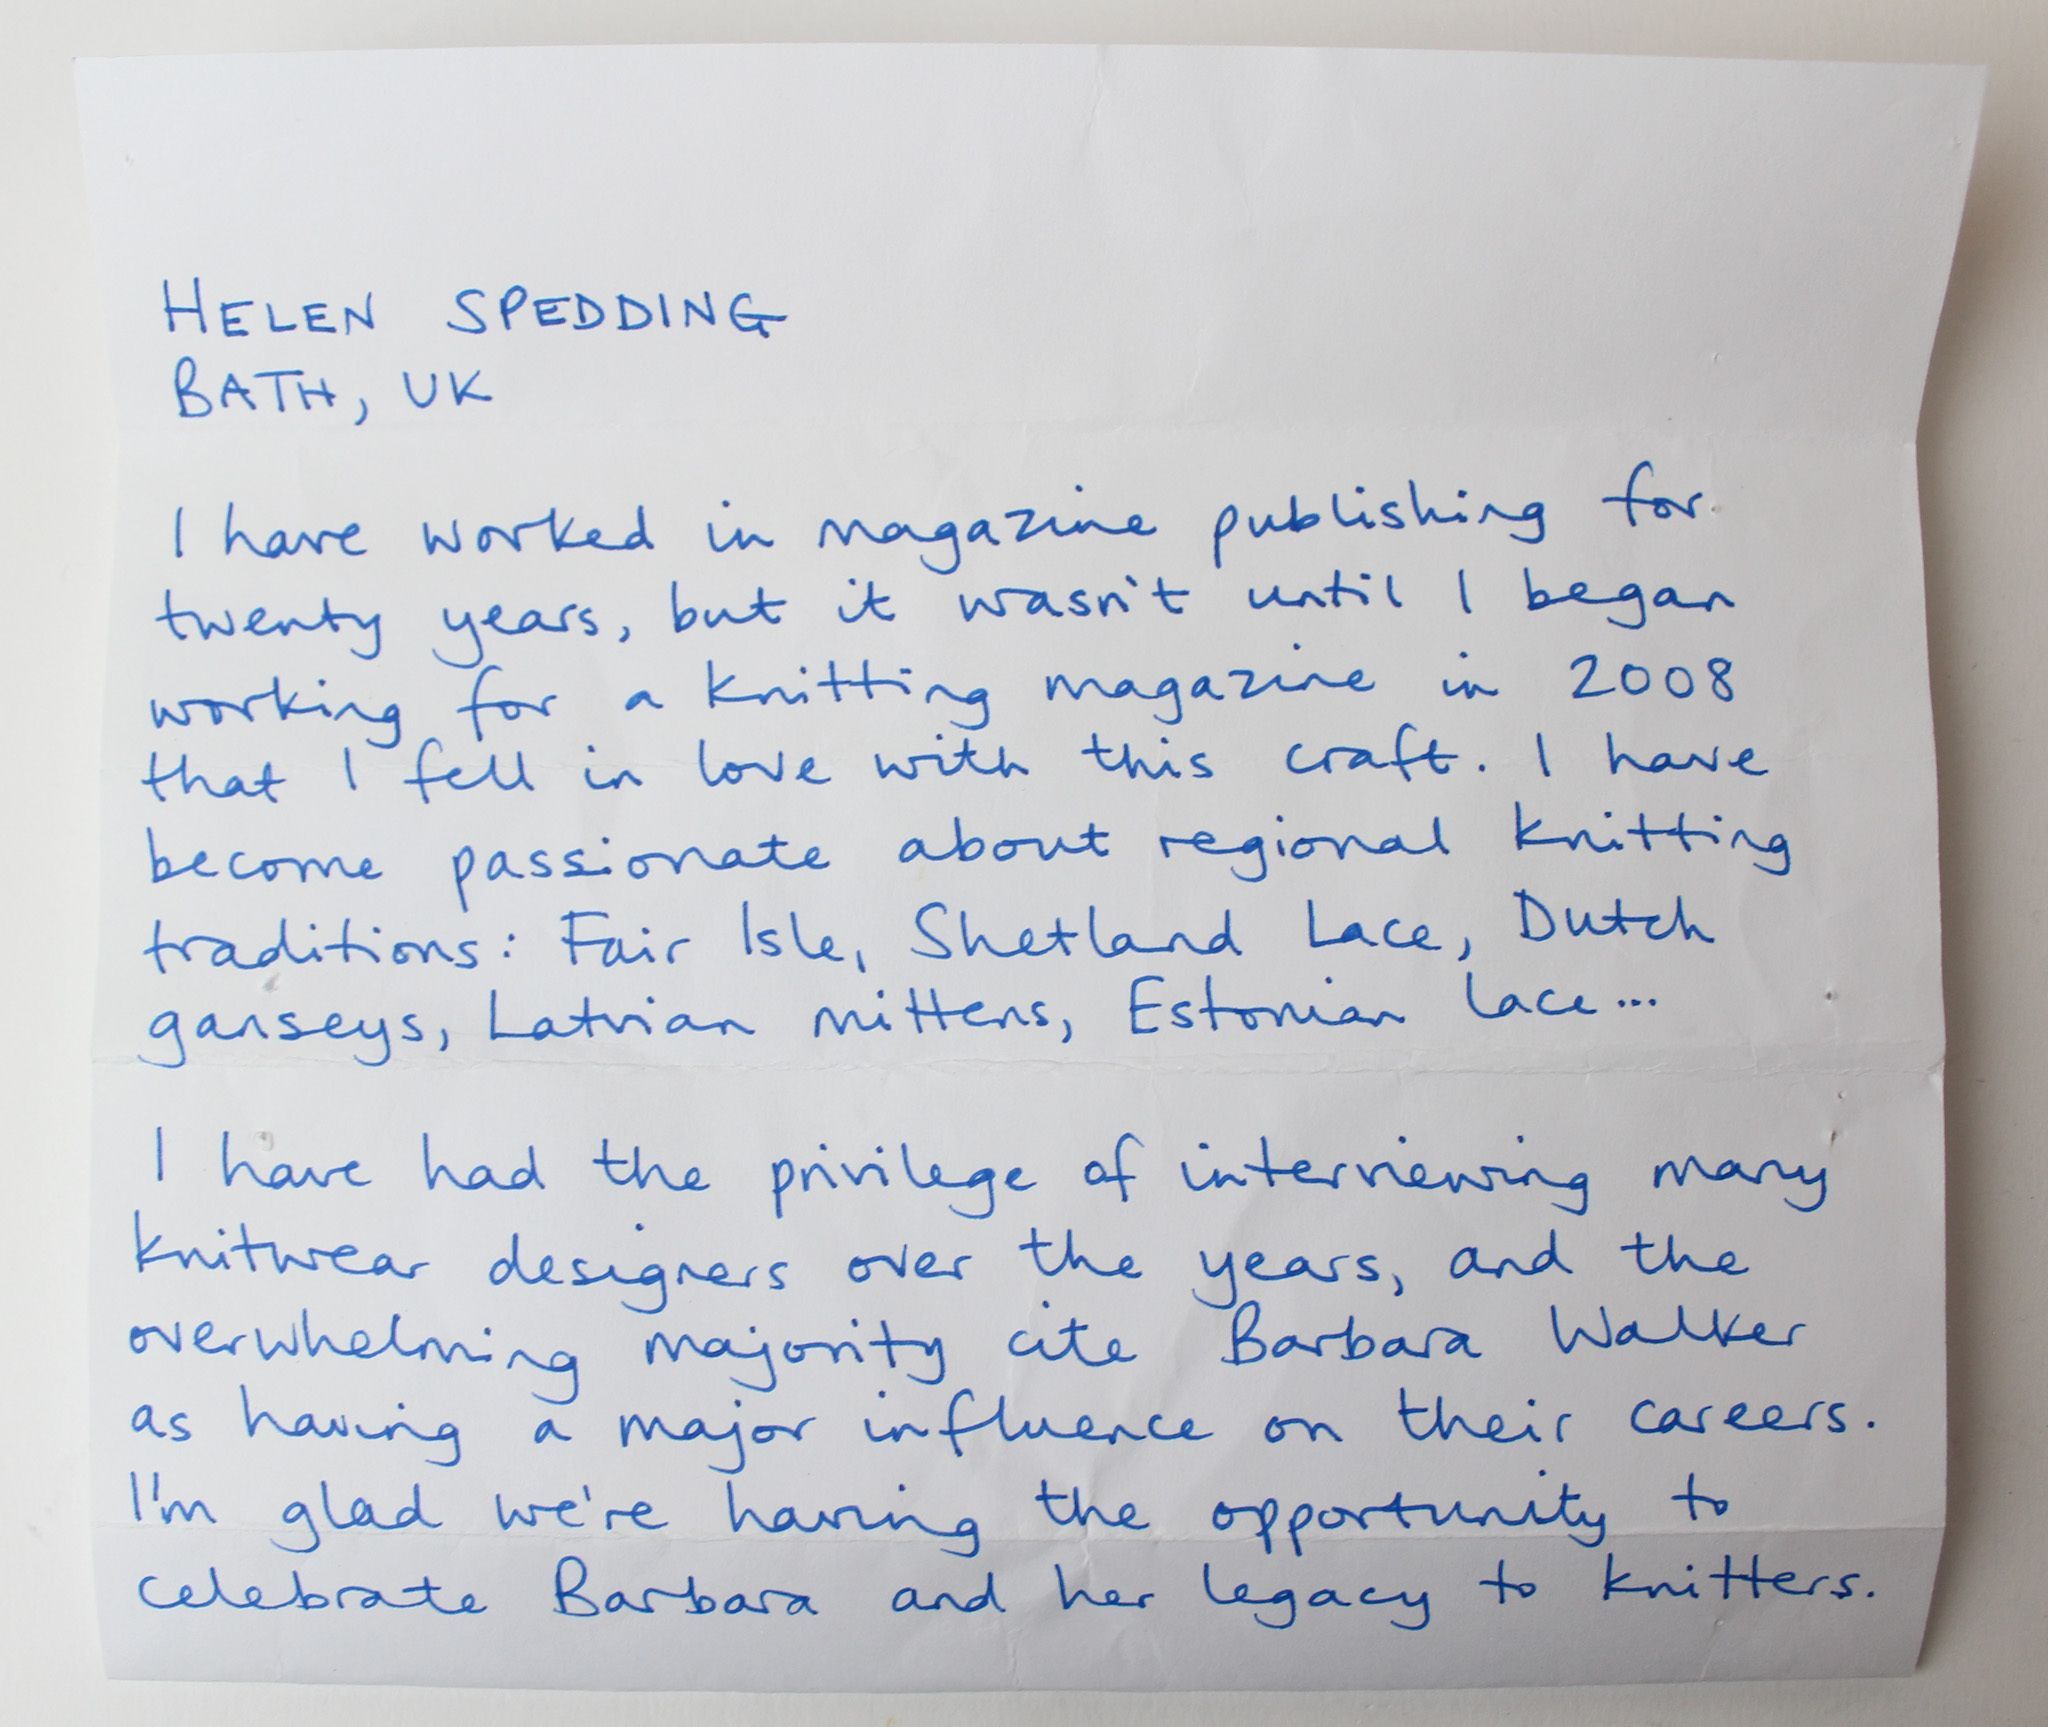 HELEN SPEDDING
BATH, UK
I have worked in magazine publishing for
twenty years, but it wasn't until I began
working for a knitting magazine in 2008
that I fell in love with this craft. I have
become passionate about regional knitting
traditions: Fair Isle, Shetland Lace, Dutch
ganseys, Latvian mittens, Estonian lace...
I have had the privilege of interviewing many
knitwear designers over the years, and the
overwhelming majority cite Barbara Walker
as having a major influence on their careers.
I'm glad we're having the opportunity to
celebrate Barbara and her legacy to knitters.